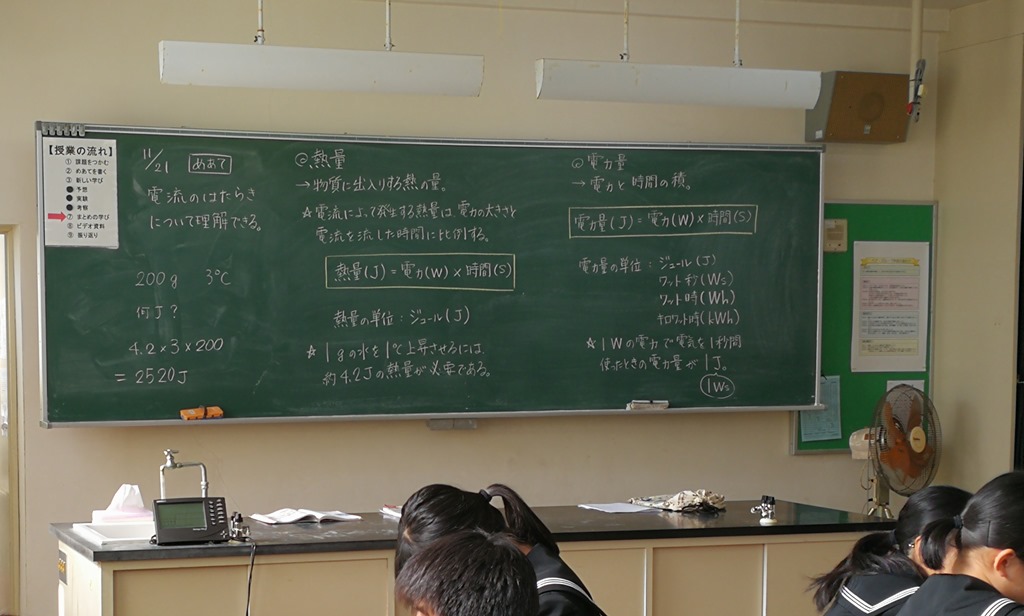 【授業の流れ】
① 課題をつかむ
② めあてを書く
③ 新しい学び
● 予想
● 実験
● 考察
⑦ まとめの学び
⑧ ビデオ資料
⑨ 振り返り
11/21 めあて
電流のはたらき
について理解できる。
200g 3℃
何J?
4.2×3×200
=2520J
◎熱量
→物質に出入りする熱の量。
☆電流によって発生する熱量は、電力の大きさと
電流を流した時間に比例する。
熱量(J)=電力(W)×時間(S)
熱量の単位:ジュール(J)
☆1gの水を1℃上昇させるには、
約4.2Jの熱量が必要である。
◎電力量
→電力と時間の積。
電力量(J)=電力(W)×時間(S)
電力量の単位:ジュール(J)
ワット秒(Ws)
ワット時(Wh)
キロワット時(kWh)
☆1Wの電力で電気を1秒間
使ったときの電力量が1J。
1Ws